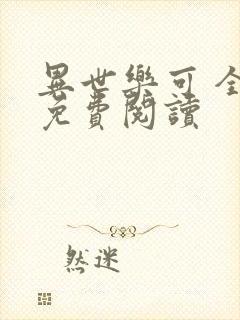 異世樂可 全
免費閱讀
然迷